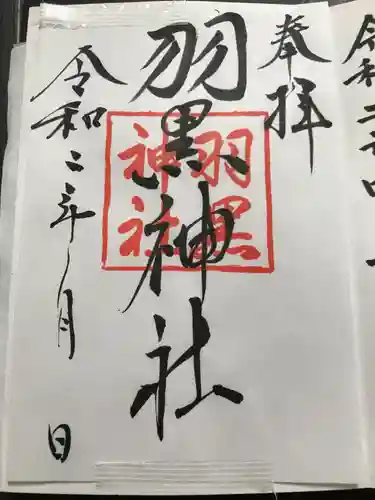 奉拝
羽黒神社
羽黒
神社
令和二年 月 日